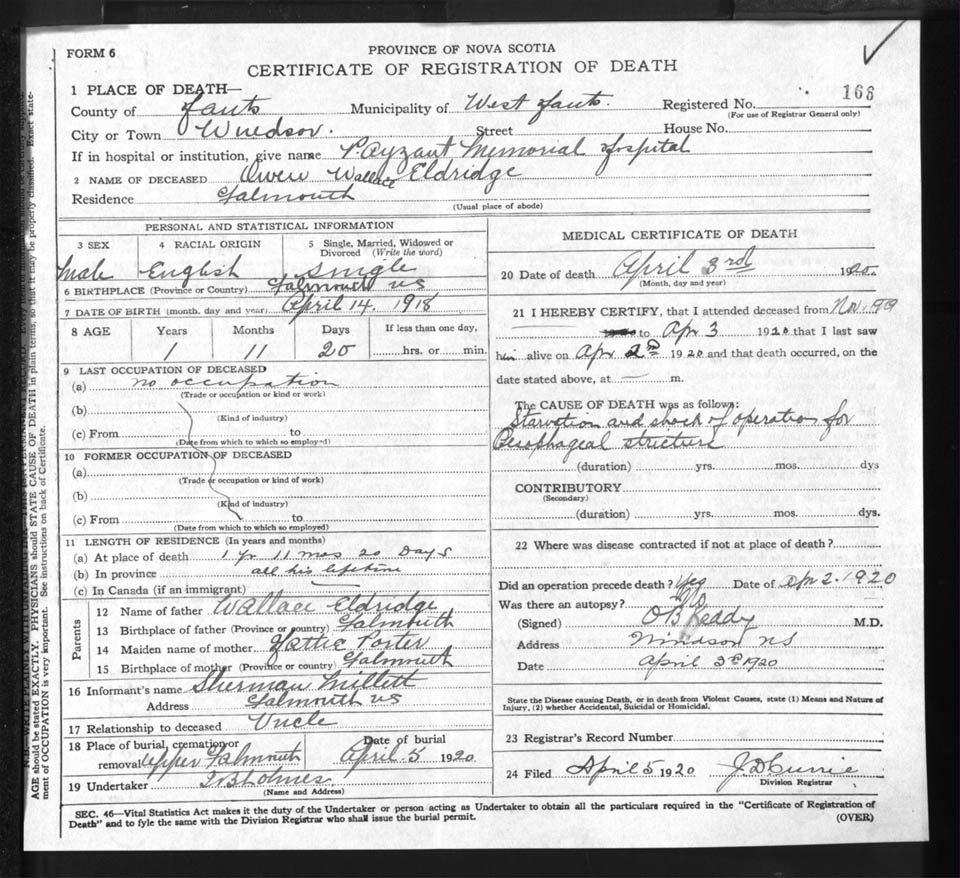 FORM 6
PROVINCE OF NOVA SCOTIA
CERTIFICATE OF REGISTRATION OF DEATH
1 PLACE OF DEATH—
County of Hants Municipality of West Hants. Registered No. 168
(For use of Registrar General only)
City or Town Windsor. Street House No.
If in hospital or institution, give name Payzant Memorial Hospital
2 NAME OF DECEASED Owen Wallace Eldridge
Residence Falmouth
(Usual place of abode)
PERSONAL AND STATISTICAL INFORMATION
3 SEX 4 RACIAL ORIGIN 5 Single, Married, Widowed or Divorced (Write the word)
Male English Single
6 BIRTHPLACE (Province or Country) Falmouth NS
7 DATE OF BIRTH (month, day and year) April 14. 1918
8 AGE Years Months Days If less than one day,
1 11 20 hrs. or min.
9 LAST OCCUPATION OF DECEASED
(a) no occupation
(Trade or occupation or kind or work)
(b)
(Kind of industry)
(c) From to
(Date from which to which so employed)
10 FORMER OCCUPATION OF DECEASED
(a)
(Trade or occupation or kind of work)
(b)
(Kind of industry)
(c) From to
(Date from which to which so employed)
11 LENGTH OF RESIDENCE (In years and months)
(a) At place of death 1 yr 11 mos 20 Days
(b) In province all his lifetime
(c) In Canada (if an immigrant)
Parents
12 Name of father Wallace Eldridge
13 Birthplace of father (Province or country) Falmouth
14 Maiden name of mother Hattie Porter
15 Birthplace of mother (Province or country) Falmouth
16 Informant's name Sherman Millett
Address Falmouth NS
17 Relationship to deceased Uncle
18 Place of burial, cremation or removal Upper Falmouth Date of burial April 5 1920
19 Undertaker Holmes
(Name and Address)
MEDICAL CERTIFICATE OF DEATH
20 Date of death April 3rd 1920.
(Month, day and year)
21 I HEREBY CERTIFY, that I attended deceased from Nov. 1919
to Apr 3 1920 that I last saw
him alive on Apr 2nd 1920 and that death occurred, on the
date stated above, at — m.
The CAUSE OF DEATH was as follows:
Starvation and shock of operation for
Oesophageal stricture
(duration) yrs. mos. dys
CONTRIBUTORY
(Secondary)
(duration) yrs. mos. dys.
22 Where was disease contracted if not at place of death?
Did an operation precede death? Yes Date of Apr 2. 1920
Was there an autopsy? No
(Signed) O B Keddy M.D.
Address Windsor NS
Date April 3rd 1920
State the Disease causing Death, or in death from Violent Causes, state (1) Means and Nature of
Injury, (2) whether Accidental, Suicidal or Homicidal.
23 Registrar's Record Number
24 Filed April 5 1920 J D Currie
Division Registrar
SEC. 46—Vital Statistics Act makes it the duty of the Undertaker or person acting as Undertaker to obtain all the particulars required in the "Certificate of Registration of
Death" and to fyle the same with the Division Registrar who shall issue the burial permit.
(OVER)
AGE should be stated EXACTLY. PHYSICIANS should STATE CAUSE OF DEATH in plain terms, so that it may be properly classified. Exact state-
ment of OCCUPATION is very important. See instructions on back of Certificate.